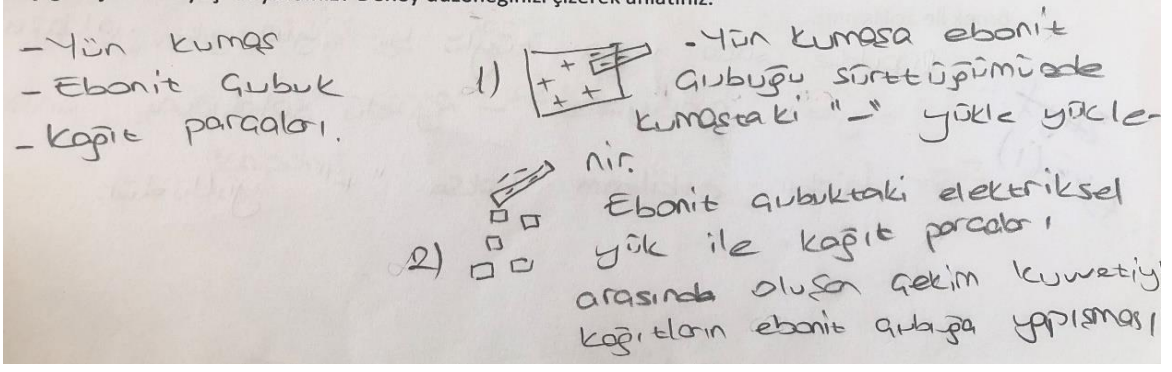 düzeneğinizi çizerek anlatınız.
- Yün kumaş
- Ebonit Çubuk
- Kağıt parçaları.
1)
- Yün kumaşa ebonit
çubuğu sürttüğümüzde
kumaştaki "-" yükle yükle-
nir.
2)
Ebonit çubuktaki elektriksel
yük ile kağıt parçaları
arasında oluşan çekim kuvvetiy
kağıtların ebonit çubuğa yapışması